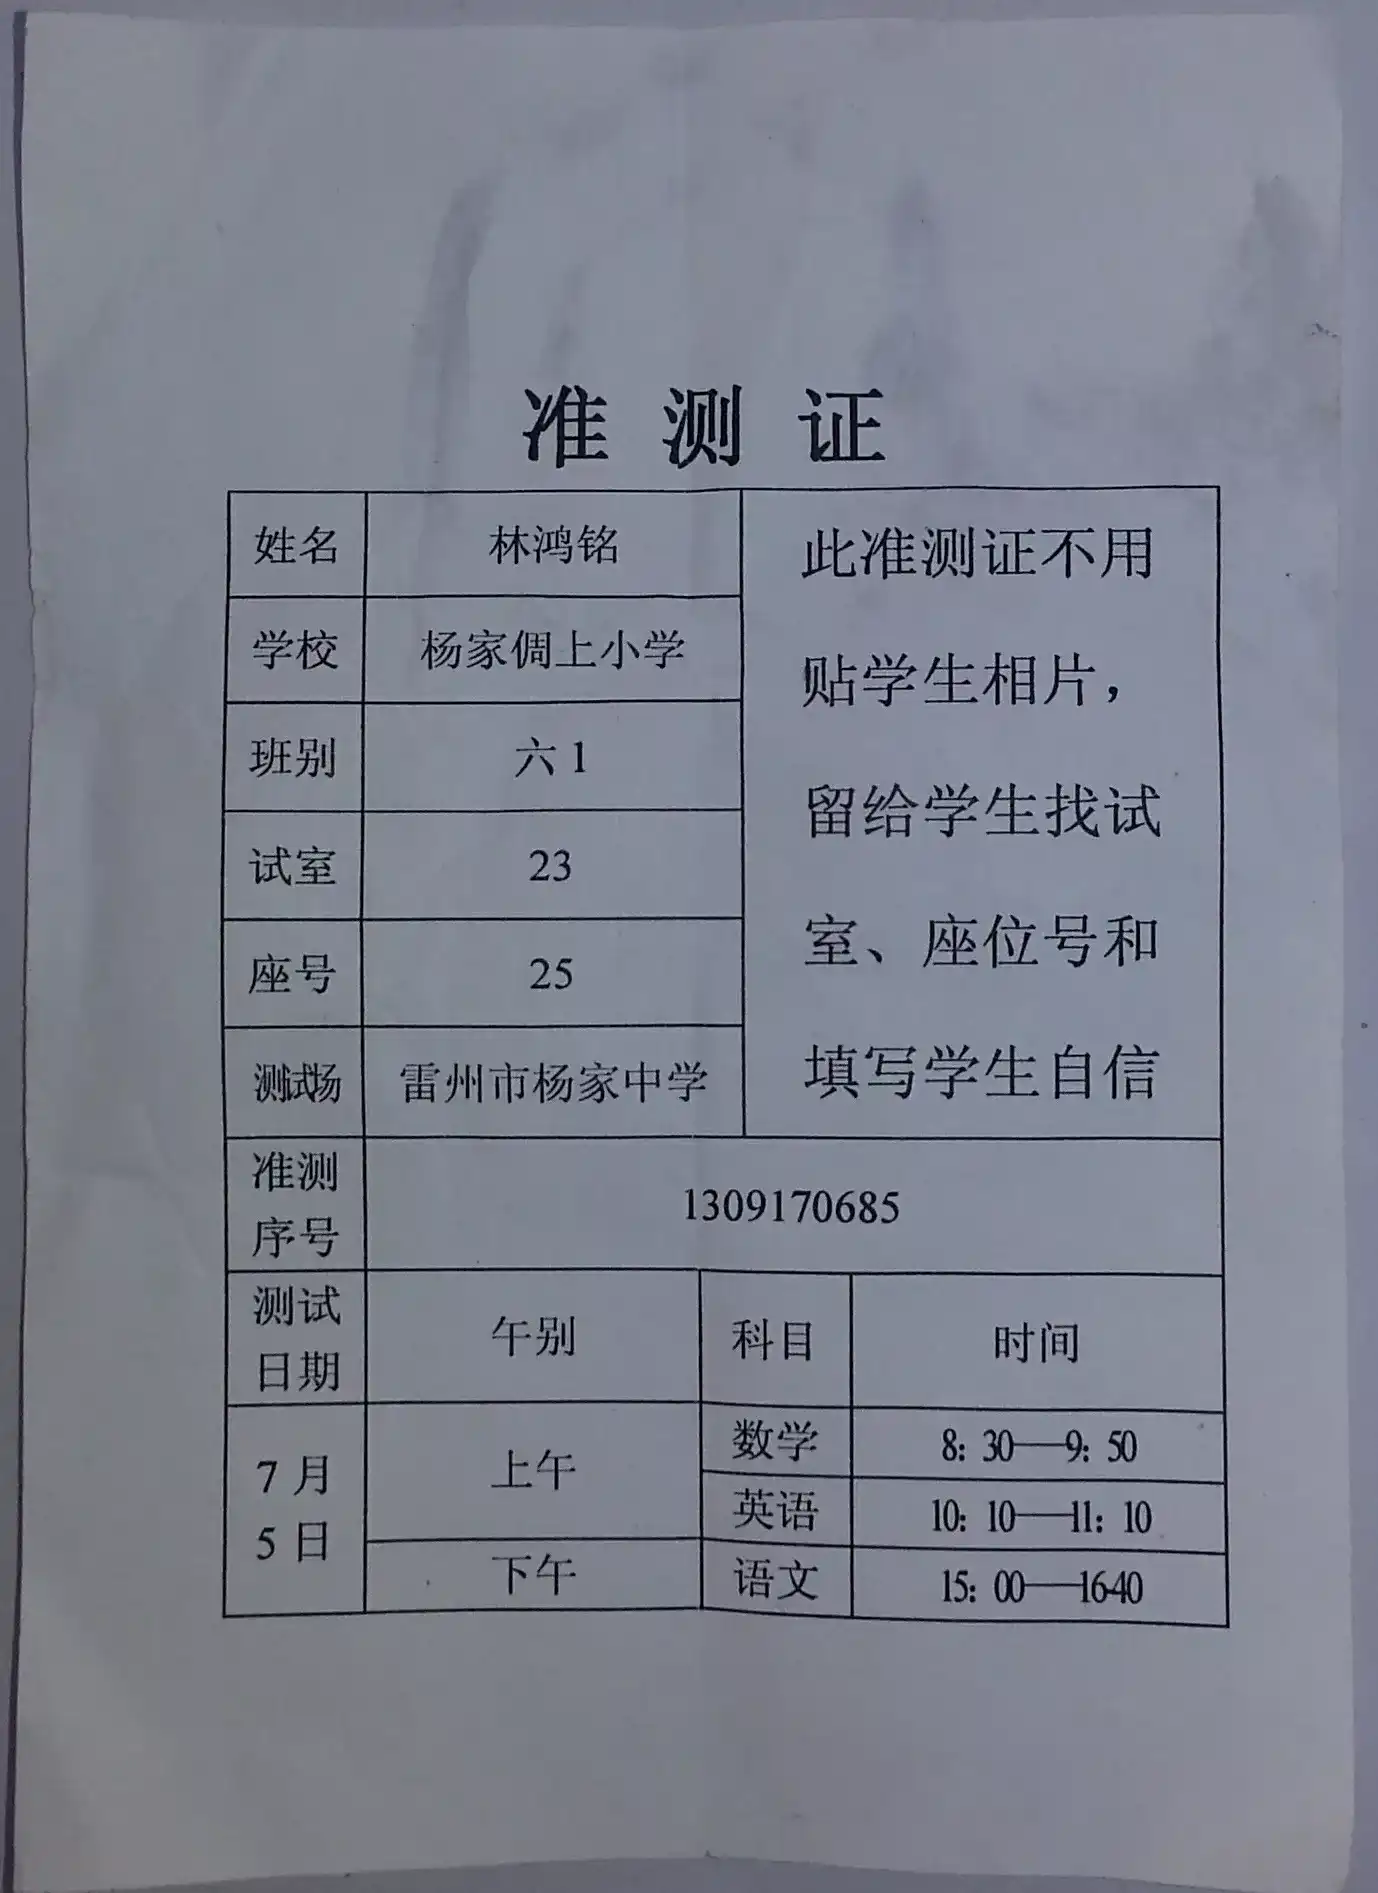 准测证
姓名 林鸿铭
学校 杨家倜上小学
班别 六1
试室 23
座号 25
测试场 雷州市杨家中学
此准测证不用
贴学生相片，
留给学生找试
室、座位号和
填写学生自信
准测
序号
1309170685
测试
日期
午别 科目 时间
7月
5日
上午
数学 8: 30—9: 50
英语 10: 10—11: 10
下午 语文 15: 00—1640